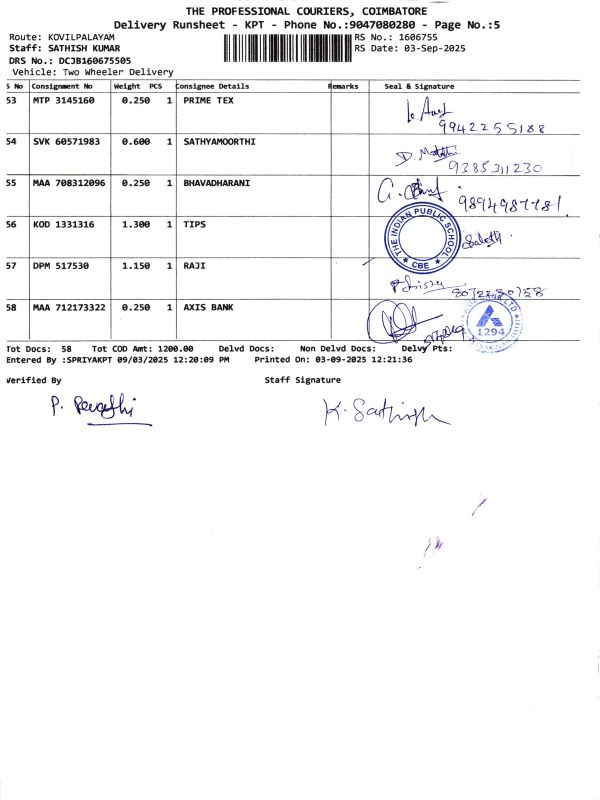 THE PROFESSIONAL COURIERS, COIMBATORE
Delivery Runsheet - KPT - Phone No.:9047080280 - Page No.:5
Route: KOVILPALAYAM RS No.: 1606755
Staff: SATHISH KUMAR RS Date: 03-Sep-2025
DRS No.: DCJB160675505
Vehicle: Two Wheeler Delivery
S No Consignment No Weight PCS Consignee Details Remarks Seal & Signature
53 MTP 3145160 0.250 1 PRIME TEX
9942255188
54 SVK 60571983 0.600 1 SATHYAMOORTHI
9385311230
55 MAA 708312096 0.250 1 BHAVADHARANI
9894987781
56 KOD 1331316 1.300 1 TIPS
THE INDIAN PUBLIC SCHOOL
CBE
57 DPM 517530 1.150 1 RAJI
58 MAA 712173322 0.250 1 AXIS BANK
1294
Tot Docs: 58 Tot COD Amt: 1200.00 Delvd Docs: Non Delvd Docs: Delvy Pts:
Entered By :SPRIYAKPT 09/03/2025 12:20:09 PM Printed On: 03-09-2025 12:21:36
Verified By Staff Signature
P. Revathi K. Sathish